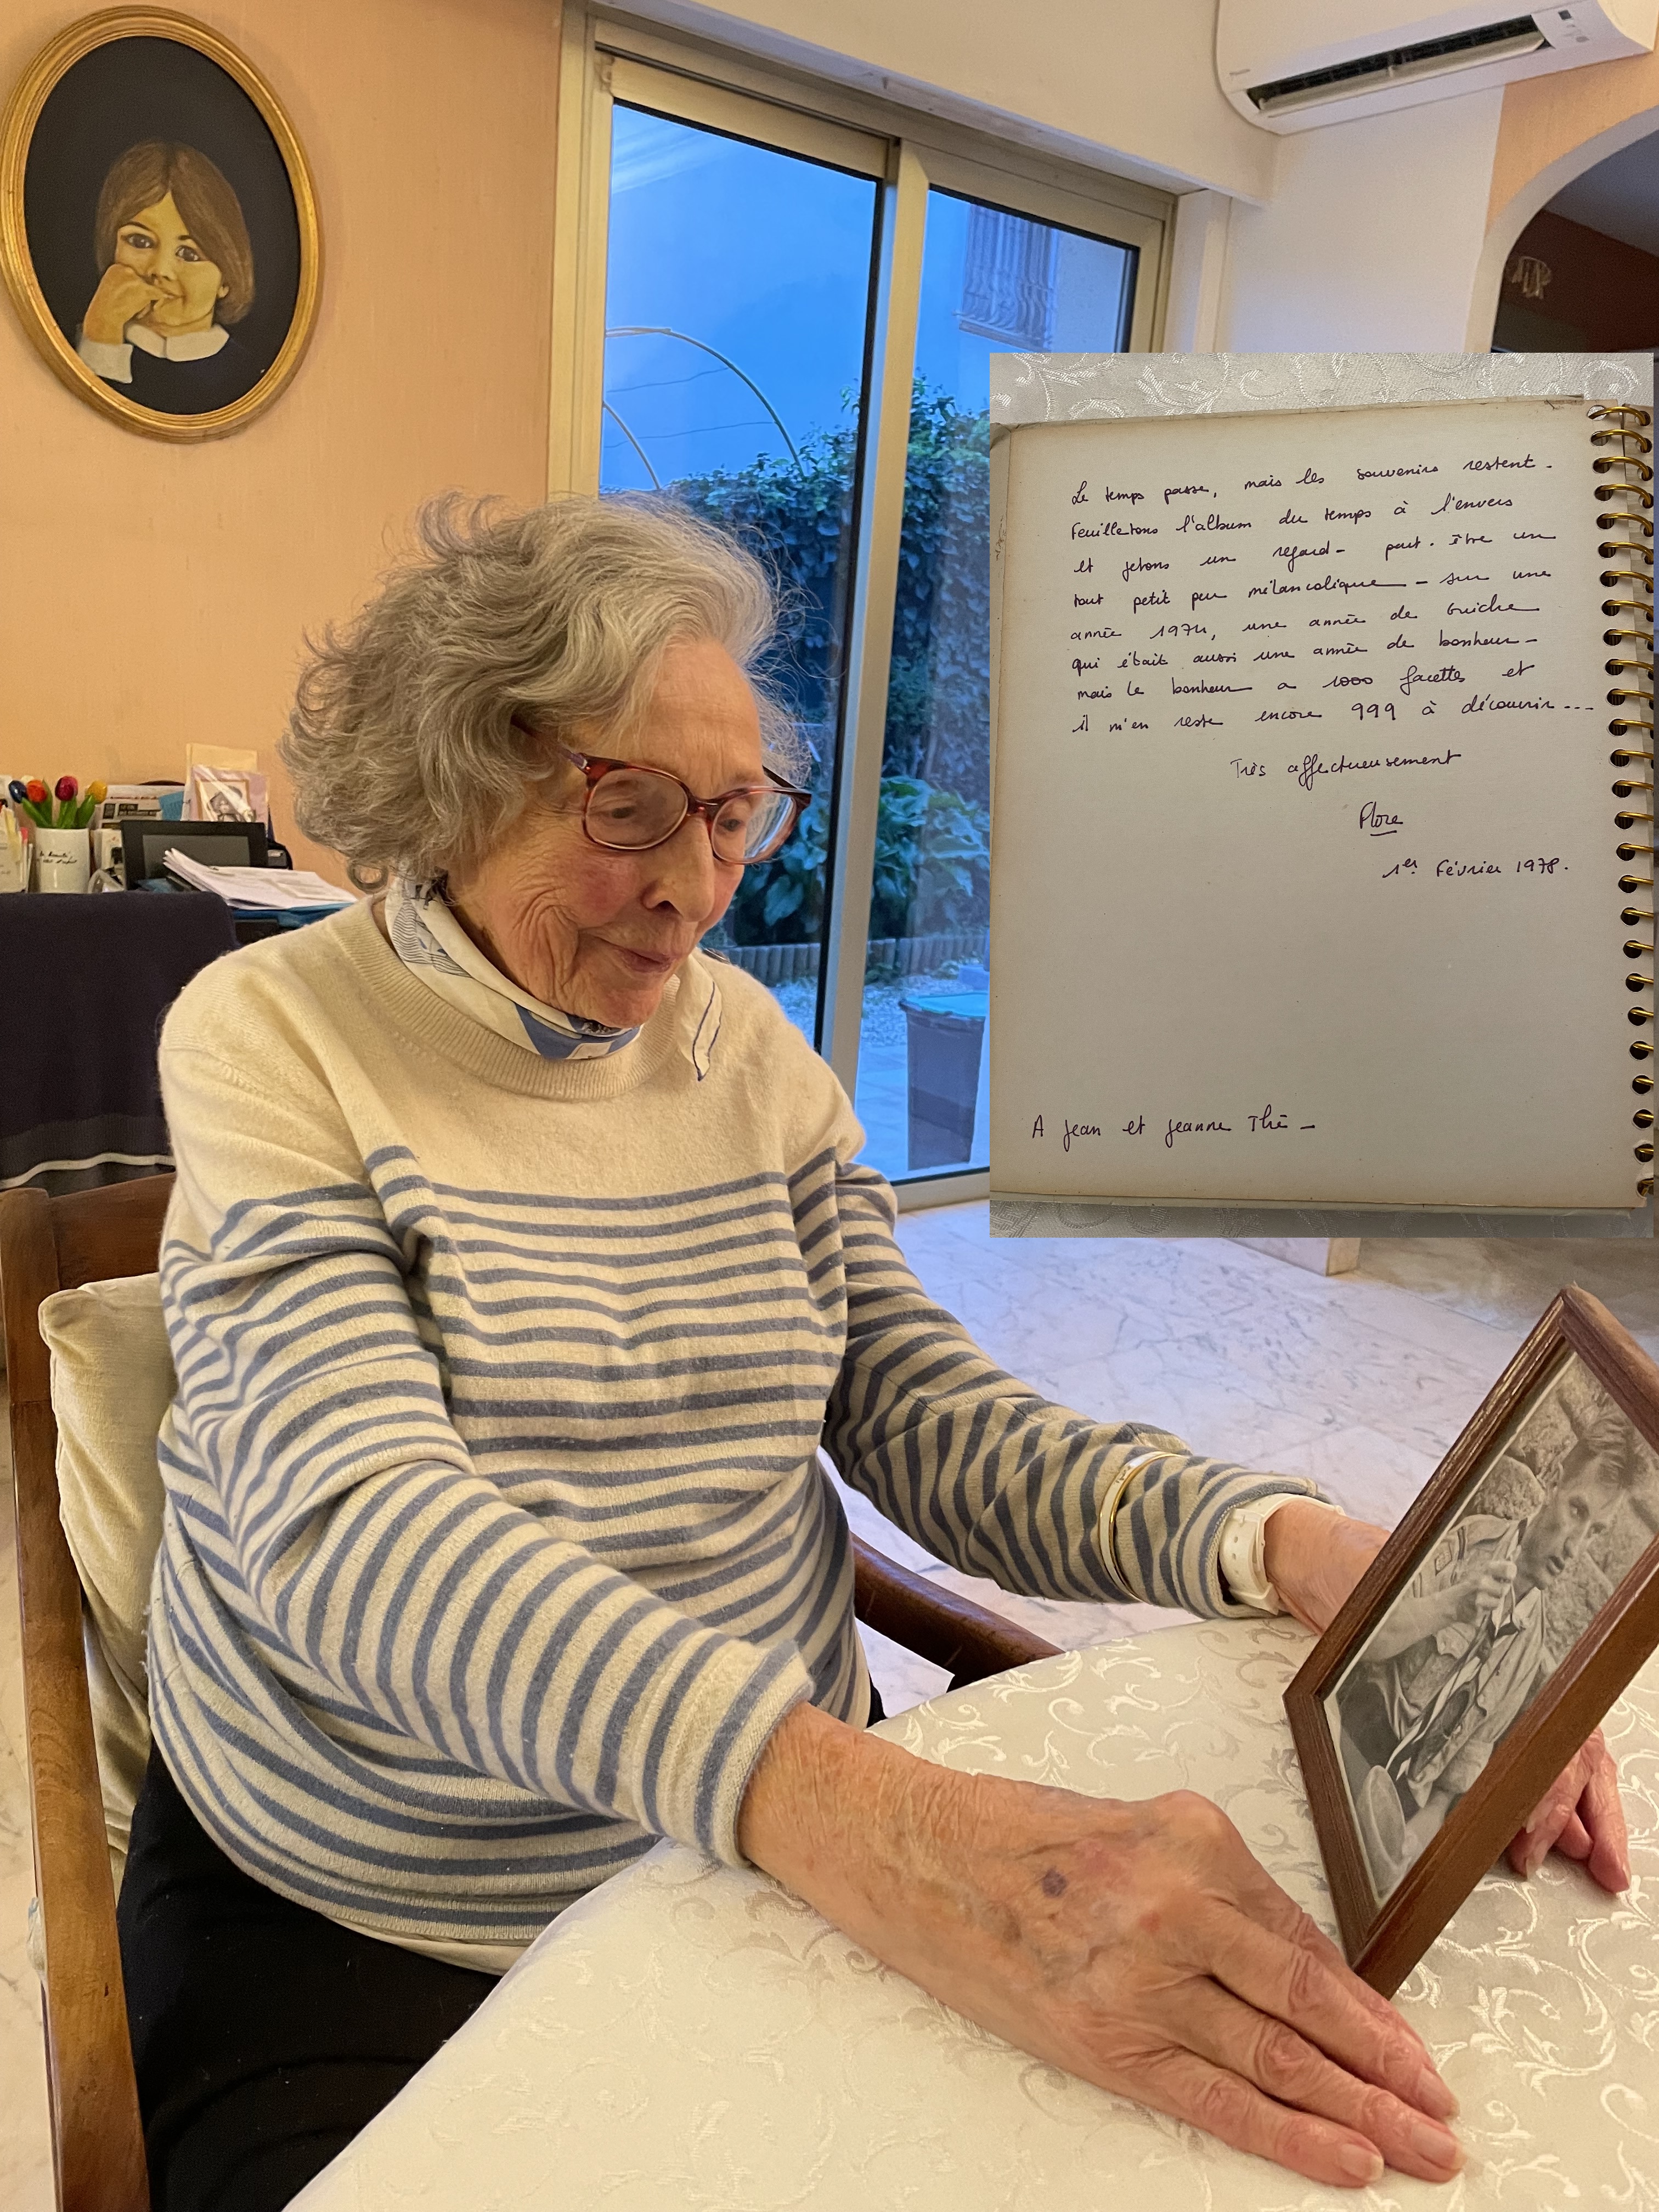 Le temps passe, mais les souvenirs restent.
Feuilletons l'album du temps à l'envers
et jetons un regard - peut-être un
tout petit peu mélancolique - sur une
année 1974, une année de Guiche
qui était aussi une année de bonheur -
mais le bonheur a 1000 facettes et
il m'en reste encore 999 à découvrir...
Très affectueusement
Flore
1er Février 1978.
A Jean et Jeanne Thé -